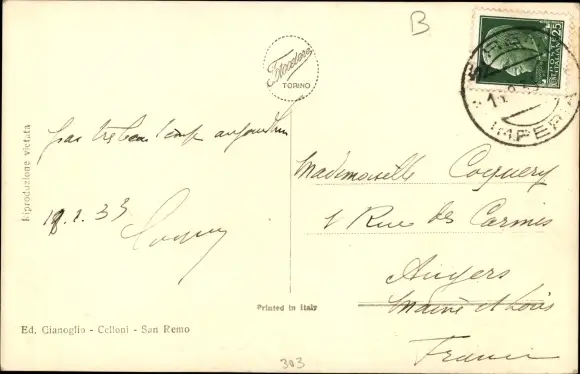 B
POSTE ITALIANE
25
Fotedora
TORINO
IMPERIA
pas très beau temps aujourd'hui
18.2.33
Coquery
Mademoiselle Coquery
1 Rue des Carmes
Angers
Maine et Loire
France
Riproduzione vietata
Printed in Italy
Ed. Gianoglio - Celloni - San Remo
303